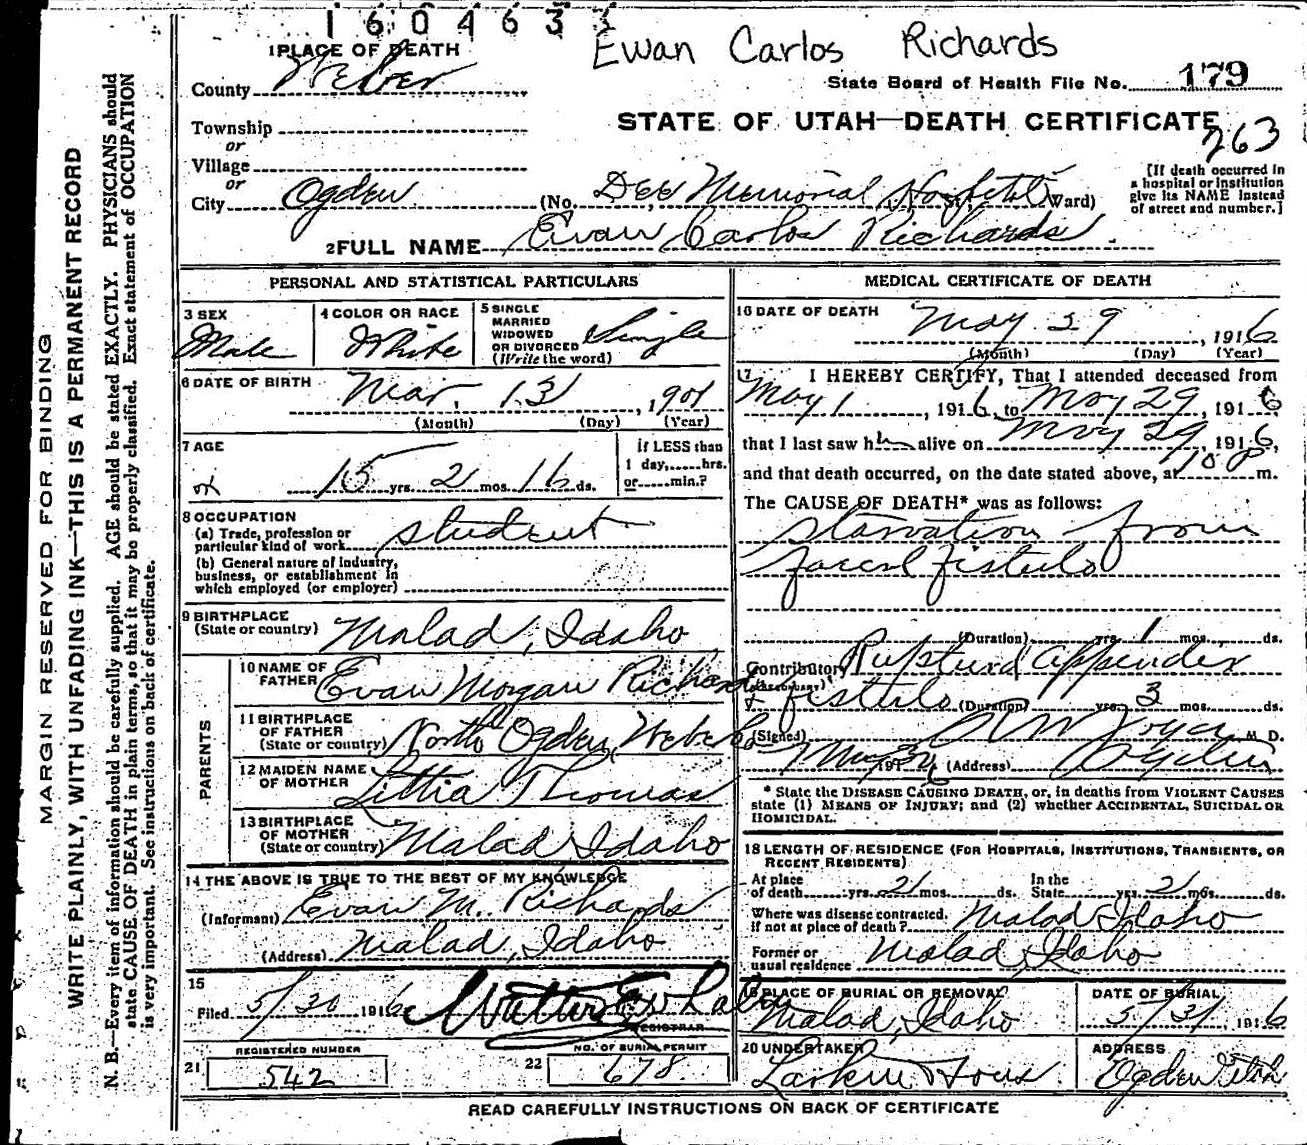 160463
Ewan Carlos Richards
1 PLACE OF DEATH
County Weber
State Board of Health File No. 179
Township
STATE OF UTAH—DEATH CERTIFICATE
263
or
Village
or
City Ogden (No. Dee Memorial Hospital St.; Ward)
[If death occurred in
a hospital or institution
give its NAME instead
of street and number.]
2 FULL NAME Evan Carlos Richards
PERSONAL AND STATISTICAL PARTICULARS
3 SEX
Male
4 COLOR OR RACE
White
5 SINGLE
MARRIED
WIDOWED
OR DIVORCED
(Write the word)
Single
6 DATE OF BIRTH
Mar. 13, 1901
(Month) (Day) (Year)
7 AGE
15 yrs. 2 mos. 16 ds.
If LESS than
1 day,......hrs.
or......min.?
8 OCCUPATION
(a) Trade, profession or
particular kind of work student
(b) General nature of industry,
business, or establishment in
which employed (or employer)
9 BIRTHPLACE
(State or country) Malad, Idaho
PARENTS
10 NAME OF
FATHER Evan Morgan Richards
11 BIRTHPLACE
OF FATHER
(State or country) North Ogden, Weber Co
12 MAIDEN NAME
OF MOTHER Littia Thomas
13 BIRTHPLACE
OF MOTHER
(State or country) Malad Idaho
14 THE ABOVE IS TRUE TO THE BEST OF MY KNOWLEDGE
(Informant) Evan M. Richards
(Address) Malad, Idaho
15
Filed 5/30 1916
REGISTRAR
REGISTERED NUMBER
21 542
NO. OF BURIAL PERMIT
22 678
MEDICAL CERTIFICATE OF DEATH
16 DATE OF DEATH
May 29, 1916
(Month) (Day) (Year)
17 I HEREBY CERTIFY, That I attended deceased from
May 1, 1916, to May 29, 1916,
that I last saw him alive on May 29, 1916,
and that death occurred, on the date stated above, at 10 P m.
The CAUSE OF DEATH* was as follows:
Starvation from
faecal fistula
(Duration) yrs. 1 mos. ds.
Contributory Ruptured appendix
(SECONDARY)
+ fistula (Duration) yrs. 3 mos. ds.
(Signed) M. D.
May 191 6 (Address) Ogden
* State the DISEASE CAUSING DEATH, or, in deaths from VIOLENT CAUSES
state (1) MEANS OF INJURY; and (2) whether ACCIDENTAL, SUICIDAL OR
HOMICIDAL.
18 LENGTH OF RESIDENCE (FOR HOSPITALS, INSTITUTIONS, TRANSIENTS, OR
RECENT RESIDENTS)
At place
of death yrs. 2 mos. ds.
In the
State yrs. 2 mos. ds.
Where was disease contracted,
if not at place of death? Malad Idaho
Former or
usual residence Malad Idaho
19 PLACE OF BURIAL OR REMOVAL
Malad, Idaho
DATE OF BURIAL
5/31, 1916
20 UNDERTAKER
Larkin & Sons
ADDRESS
Ogden Utah
READ CAREFULLY INSTRUCTIONS ON BACK OF CERTIFICATE
MARGIN RESERVED FOR BINDING
WRITE PLAINLY, WITH UNFADING INK—THIS IS A PERMANENT RECORD
N. B.—Every item of information should be carefully supplied. AGE should be stated EXACTLY. PHYSICIANS should
state CAUSE OF DEATH in plain terms, so that it may be properly classified. Exact statement of OCCUPATION
is very important. See instructions on back of certificate.